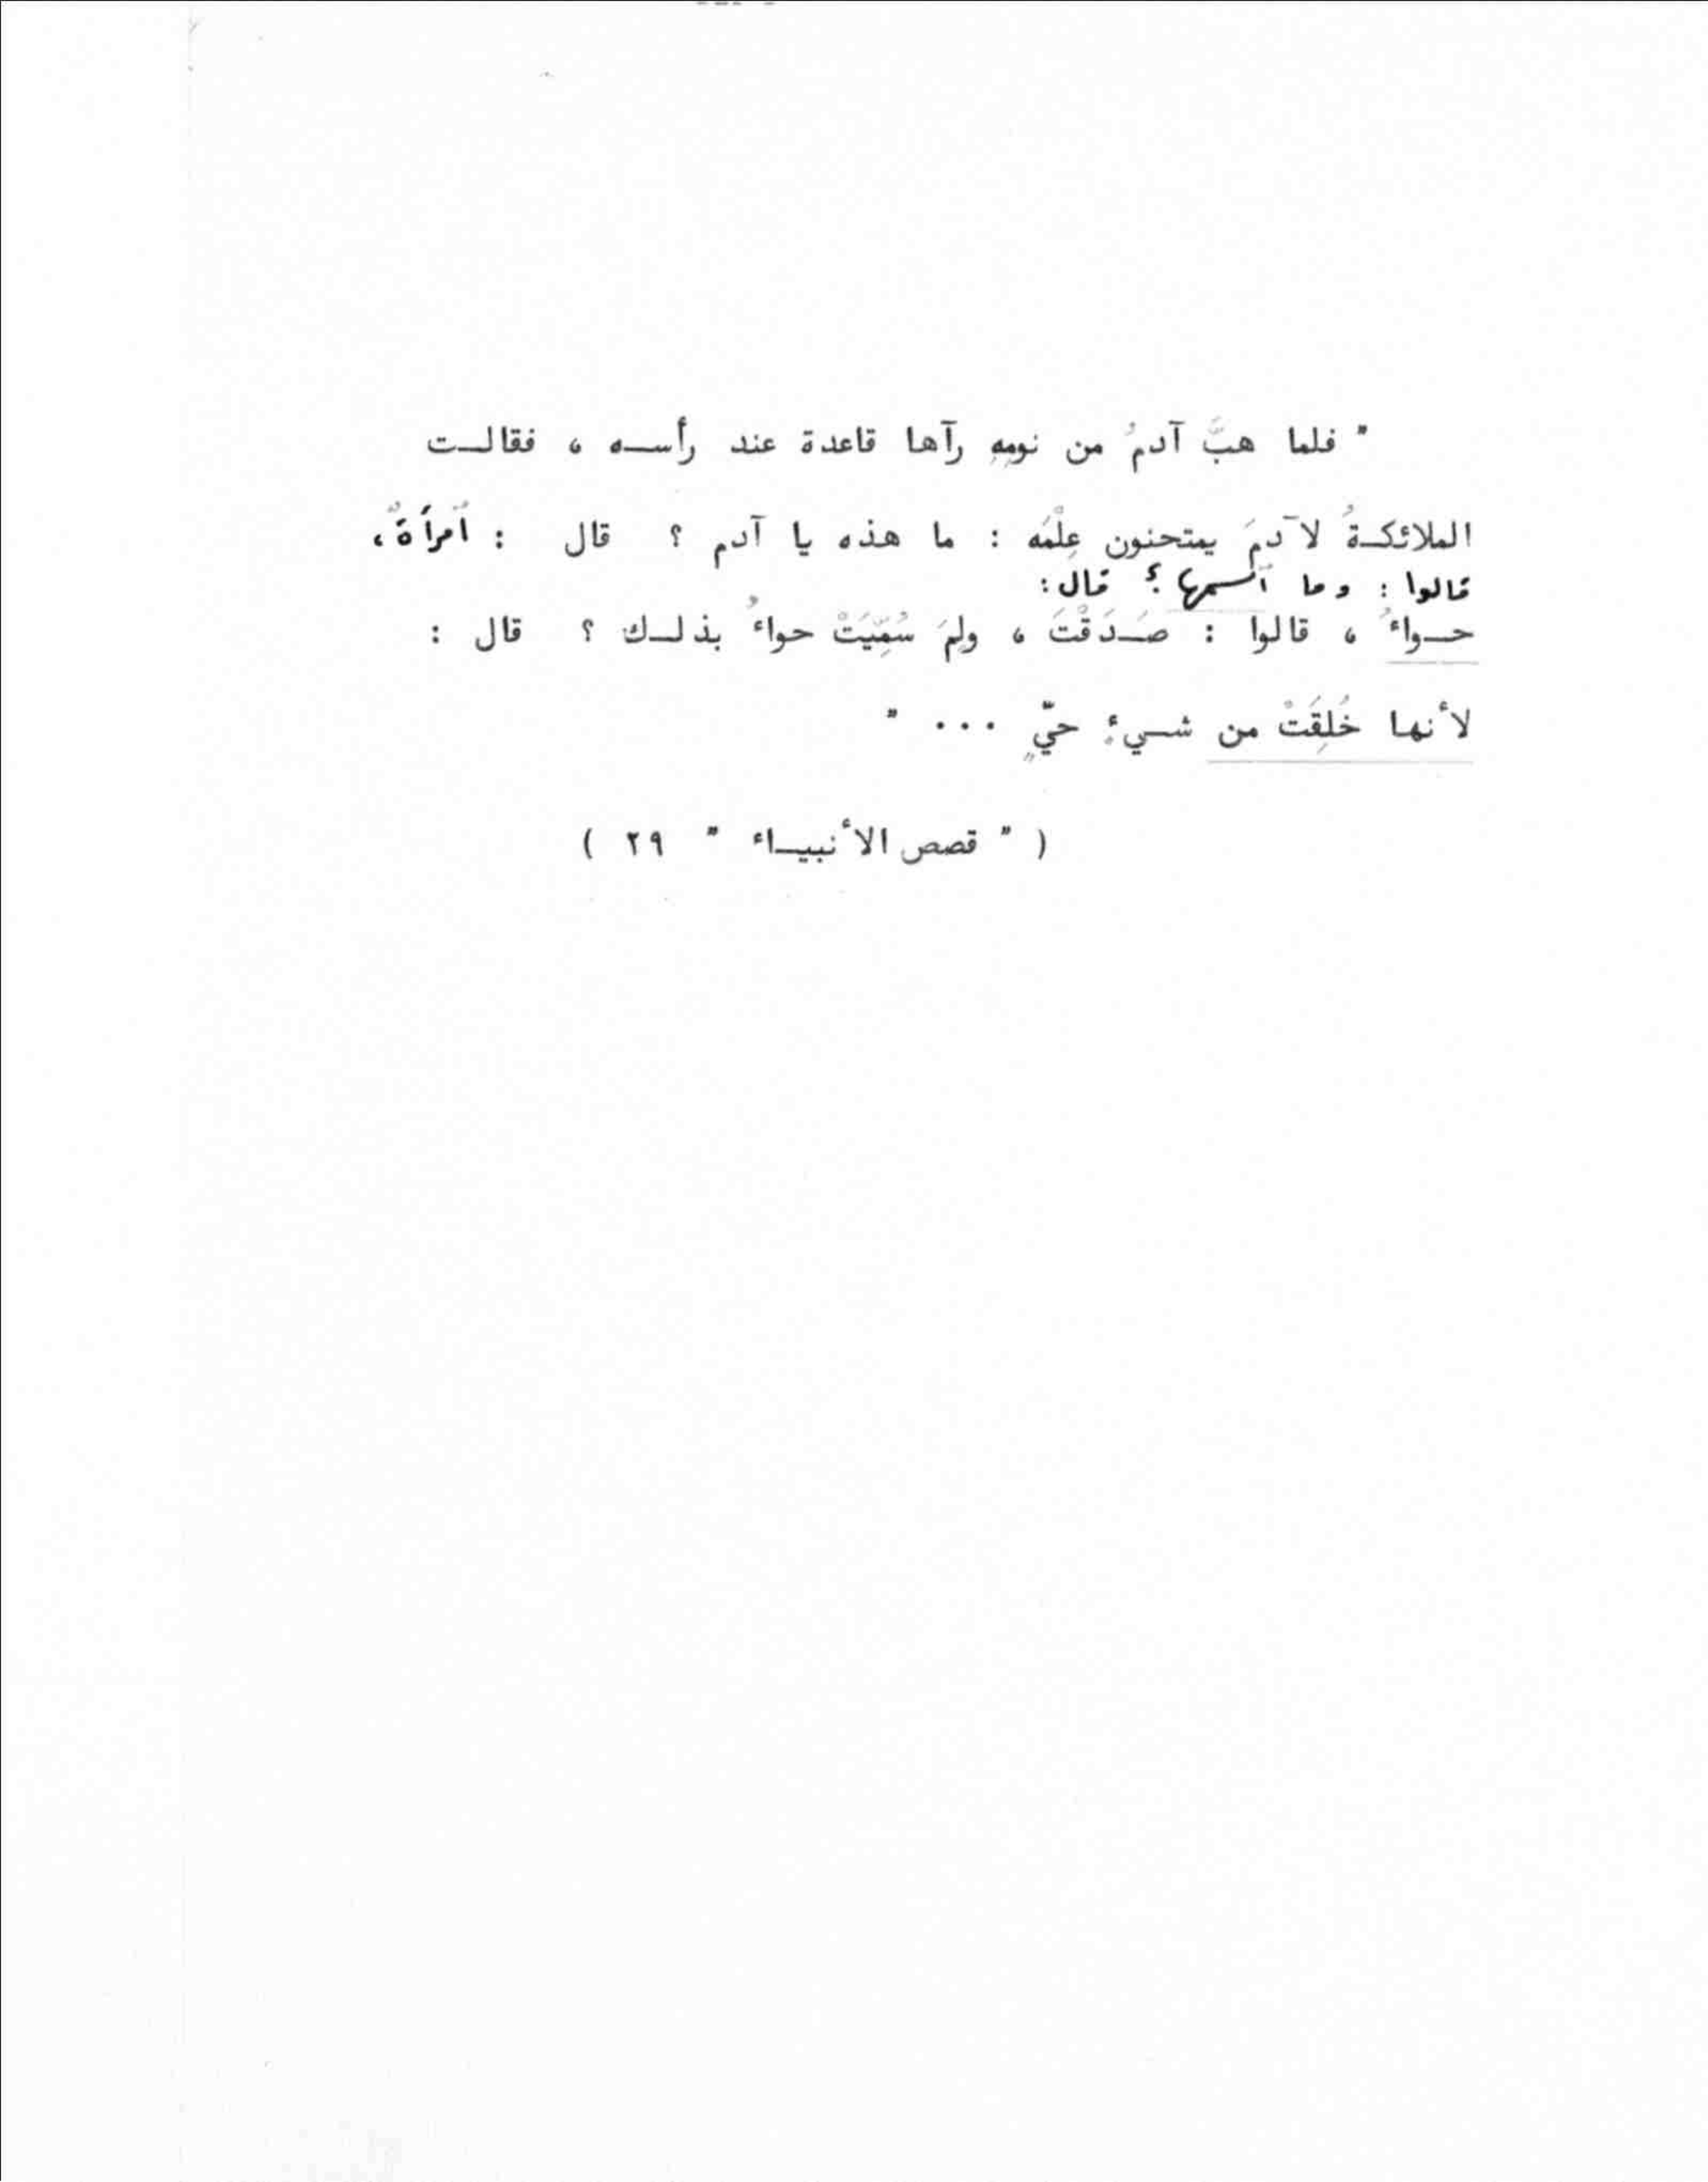 " فلما هبَّ آدمُ من نومِهِ رآها قاعدة عند رأسه ، فقالت
الملائكةُ لآدمَ يمتحنون عِلْمَه : ما هذه يا آدم ؟ قال : ٱمرأَةٌ ،
قالوا : وما ٱسمها ؟ قال :
حواءُ ، قالوا : صَدَقْتَ ، ولِمَ سُمِّيَتْ حواءُ بذلك ؟ قال :
لأنها خُلِقَتْ من شيءٍ حيٍّ ... "
( " قصص الأنبياء " ٢٩ )